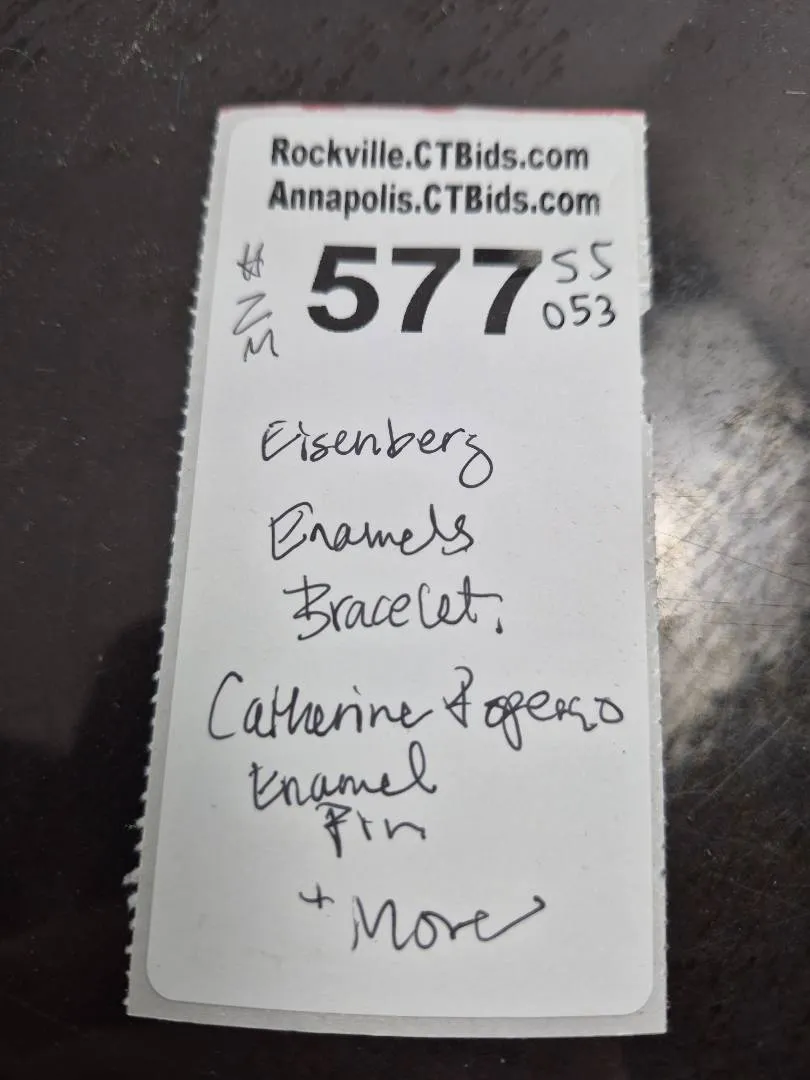 Rockville.CTBids.com
Annapolis.CTBids.com
# 577 55
ZM 053
Eisenberg
Enamels
Bracelet,
Catherine Popesco
Enamel
Pin
+ More